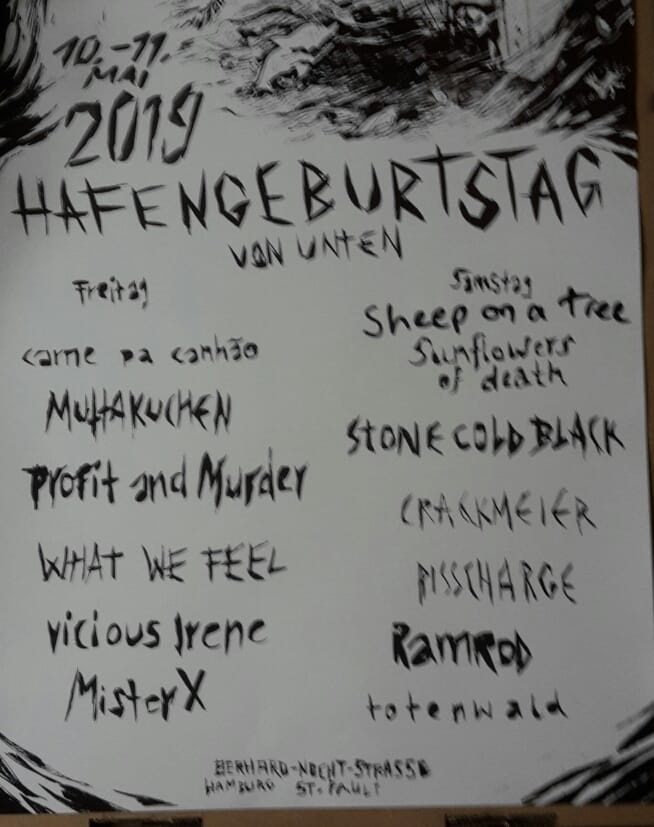 10.-11.
MAI
2019
HAFENGEBURTSTAG
VON UNTEN
Freitag
carne pa canhão
MUttAKUCHEN
Profit and Murder
WHAT WE FEEL
vicious Irene
Mister X
Samstag
Sheep on a tree
Sunflowers
of death
STONE COLD BLACK
CRACKMEIER
PISSCHARGE
RAMROD
totenwald
BERHARD-NOCHT-STRASSE
HAMBURG ST. PAULI